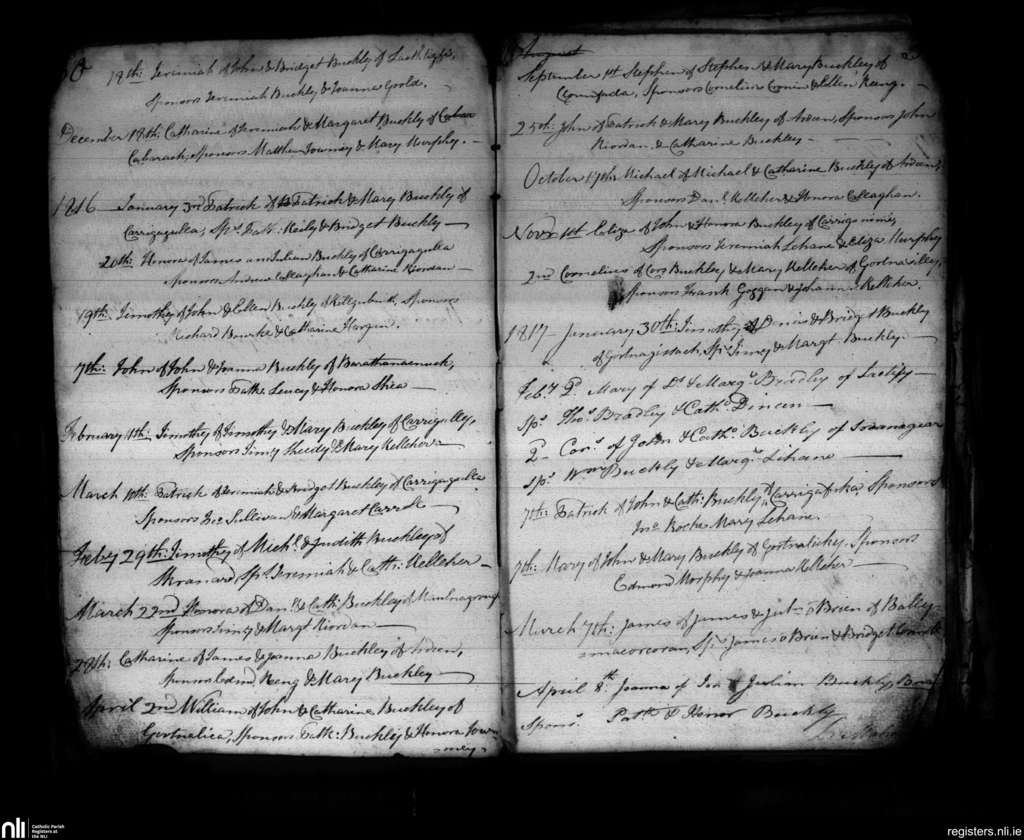 18th: Jeremiah of John & Bridget Buckly of
Sponsors Jeremiah Buckly & Joanna Goold.
December 18th: Catharine of Jeremiah & Margaret Buckly of
Cabarach, Sponsors Matthew Towney & Mary Murphy. —
1816 — January 3rd Patrick of Patrick & Mary Buckly of
Carrigagulla, Sps. Patk: Reily & Bridget Buckly —
20th: Honora of James and Julian Buckly of Carrigagulla
Sponsors Andrew Callaghan & Catharine Riordan —
19th: Timothy of John & Ellen Buckly of Sponsors
Richard Bourke & Catharine
7th: John of John & Joanna Buckly of
Sponsors Patk. Leucy & Honora Shea —
February 11th: Timothy of Timothy & Mary Buckley of Carrigulley,
Sponsors Timy Sheedy & Mary Kelleher —
March 10th: Patrick of Jeremiah & Bridget Buckley of Carrigagulla
Sponsors Sullivan & Margaret Carroll —
Febry 29th: Timothy of Michl. & Judith Buckley of
Sps. Jeremiah & Cath: Kelleher —
March 22nd Honora of Danl. & Cath: Buckley of
Sponsors Timy & Margt Riordan —
28th: Catharine of James & Joanna Buckley of Ardeen,
Sponsors Edmd. Keng & Mary Buckley —
April 2nd William of John & Catharine Buckley of
Gortnalica, Sponsors Patk: Buckley & Honora Town
=ney
August
September 1st Stephen of Stephen & Mary Buckley of
Clonifada, Sponsors Cornelius Cronin & Ellen Keng. —
25th: John of Patrick & Mary Buckley of Ardeen, Sponsors John
Riordan & Catharine Buckley —
October 17th: Michael of Michael & Catharine Buckley of Ardeen,
Sponsors Danl. Kelleher & Honora Callaghan.
Novr 1st Eliza of John & Honora Buckley of Carriganimie,
Sponsors Jeremiah Lehane & Eliza Murphy
2nd Cornelius of Cors Buckley & Mary Kelleher of
Sponsors Frank Goggan & Johanna Kelleher.
1817 — January 30th: Timothy of Denis & Bridget Buckley
of Sps. Timy & Margt Buckley. —
Feby 2. Mary of Ds. & Margt. Bradley of Lactify —
Sps. Thos. Bradley & Cath: Dineen —
2 Cors. of John & Cath: Buckley of
Sps. Wm Buckly & Margt. Lihane —
7th: Patrick of John & Cath: Buckley of Sponsors
Jno. Rocke Mary Lehane.
7th: Mary of John & Mary Buckley of Sponsors
Edmond Morphy & Joanna Kelleher —
March 7th: James of James & Jul- o Brien of Bally-
=macorcoran, Sps. James o Brien & Bridget
April 8th. Joanna of & Julian Buckly,
Sponsrs. Patk & Honor Buckly
nli
Catholic Parish
Registers at
the NLI
registers.nli.ie